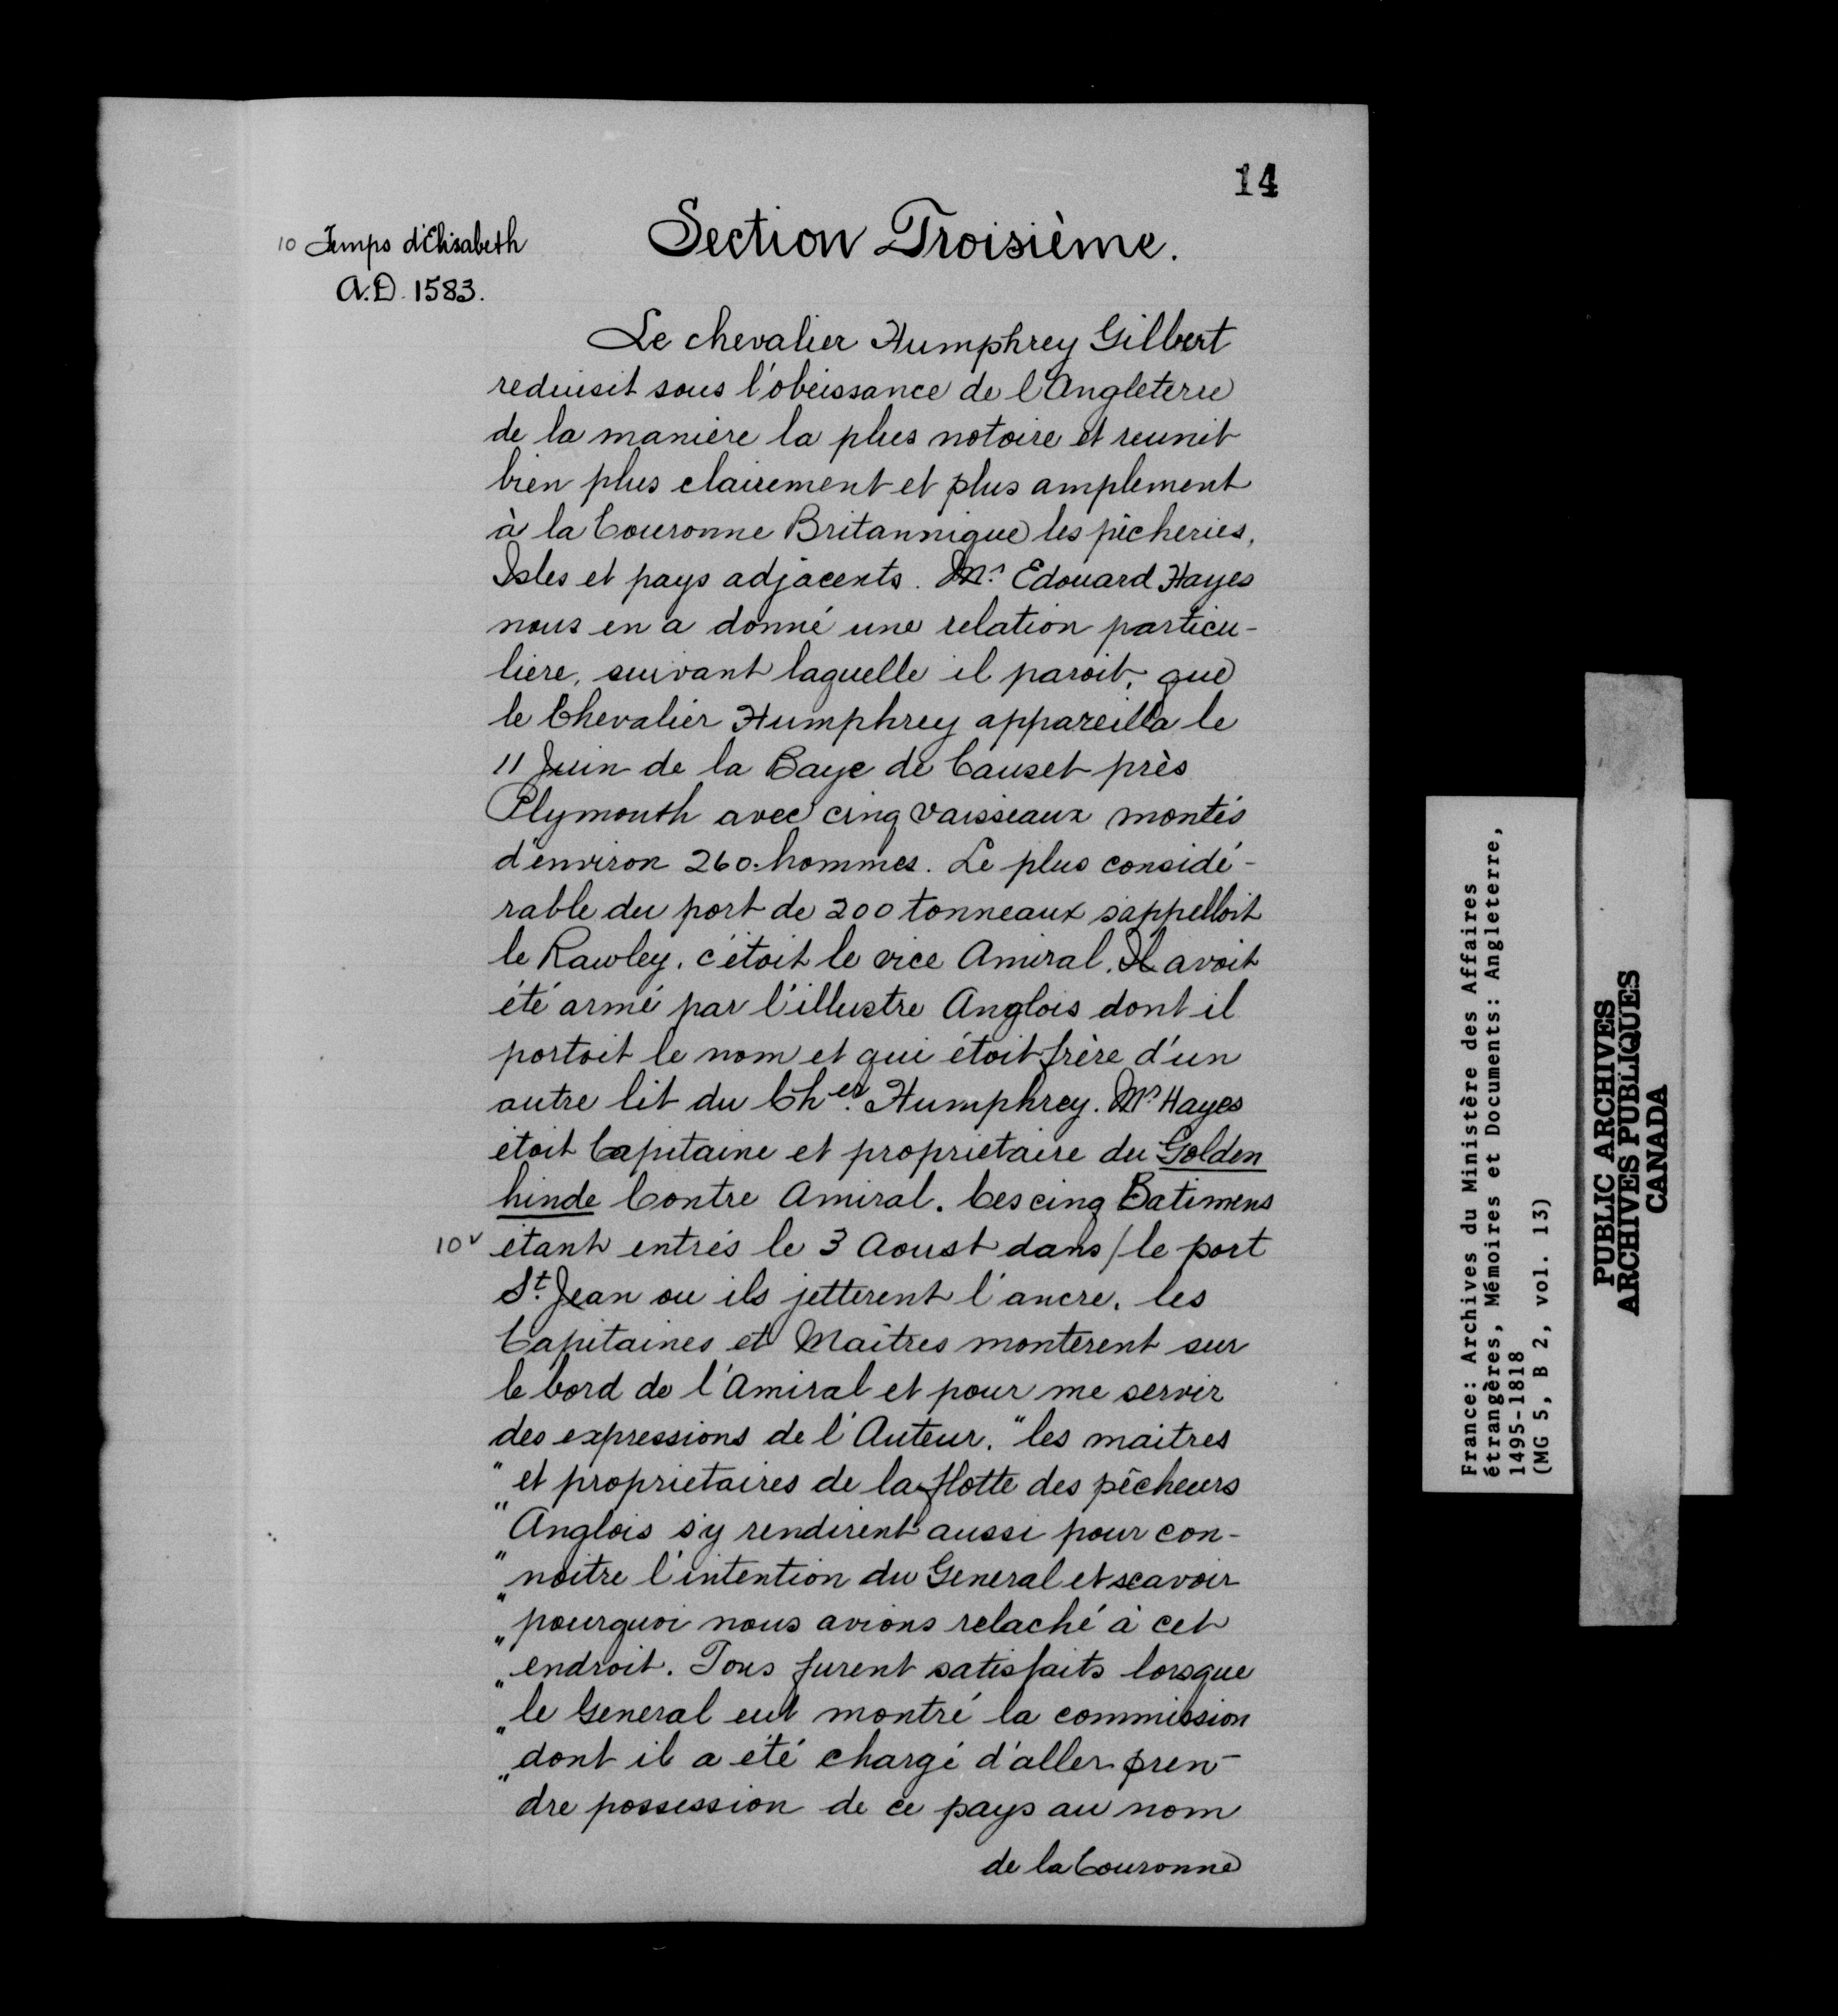 14
10 Temps d'Elisabeth
A.D. 1583.
Section Troisième.
Le chevalier Humphrey Gilbert
reduisit sous l'obeissance de l'Angleterre
de la maniere la plus notoire et reunit
bien plus clairement et plus amplement
à la Couronne Britannique les pêcheries,
Isles et pays adjacents. Mr. Edouard Hayes
nous en a donné une relation particu-
liere, suivant laquelle il paroit, que
le Chevalier Humphrey appareilla le
11 Juin de la Baye de Causet près
Plymouth avec cinq vaisseaux montés
d'environ 260 hommes. Le plus considé-
rable du port de 200 tonneaux s'appelloit
le Rawley, c'étoit le vice Amiral. Il avoit
été armé par l'illustre Anglois dont il
portoit le nom et qui étoit frère d'un
autre lit du Cher. Humphrey. Mr. Hayes
étoit Capitaine et proprietaire du Golden
hinde Contre Amiral. Ces cinq Batimens
10v étant entrés le 3 Aoust dans / le port
St. Jean ou ils jetterent l'ancre, les
Capitaines et Maîtres monterent sur
le bord de l'Amiral et pour me servir
des expressions de l'Auteur, "les maitres
" et proprietaires de la flotte des pêcheurs
" Anglois s'y rendirent aussi pour con-
" noitre l'intention du General et scavoir
" pourquoi nous avions relaché à cet
" endroit. Tous furent satisfaits lorsque
" le General eut montré la commission
" dont il a été chargé d'aller pren-
" dre possession de ce pays au nom
de la Couronne
France: Archives du Ministère des Affaires
étrangères, Mémoires et Documents: Angleterre,
1495-1818
(MG 5, B 2, vol. 13)
PUBLIC ARCHIVES
ARCHIVES PUBLIQUES
CANADA